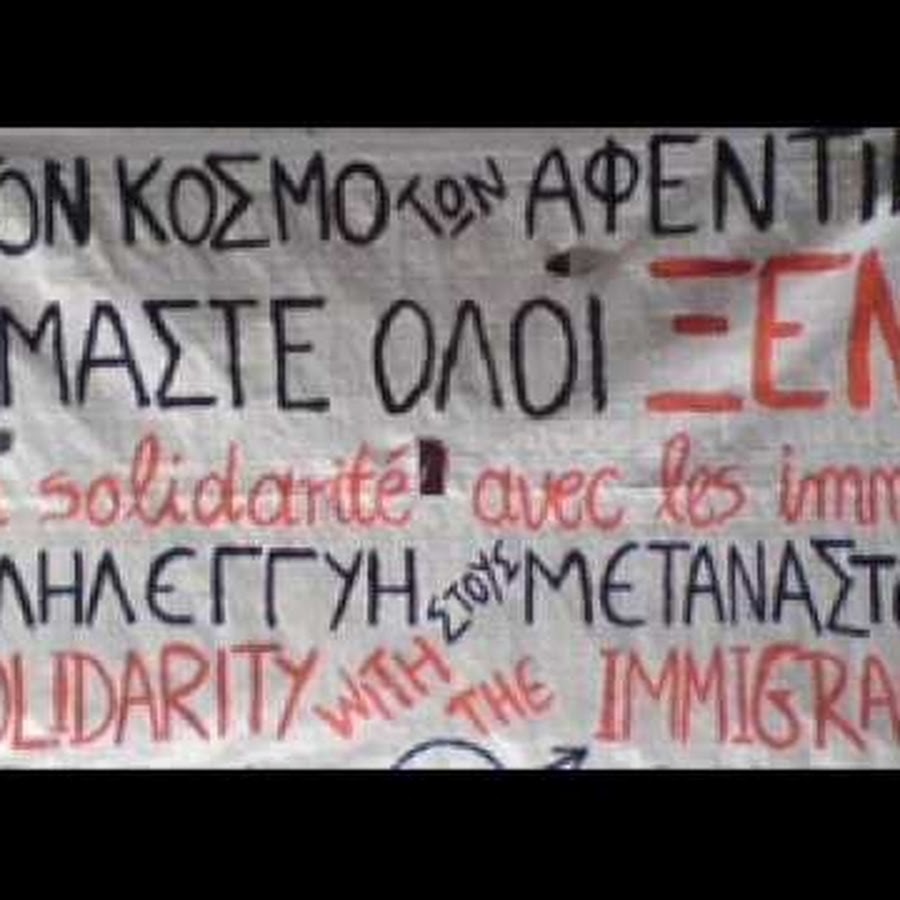 ΟΝ ΚΟΣΜΟ ΤΩΝ ΑΦΕΝΤΙ
ΜΑΣΤΕ ΟΛΟΙ ΞΕΝ
solidarité avec les imm
ΛΗΛΕΓΓΥΗ ΣΤΟΥΣ ΜΕΤΑΝΑΣΤ
OLIDARITY WITH THE IMMIGRA